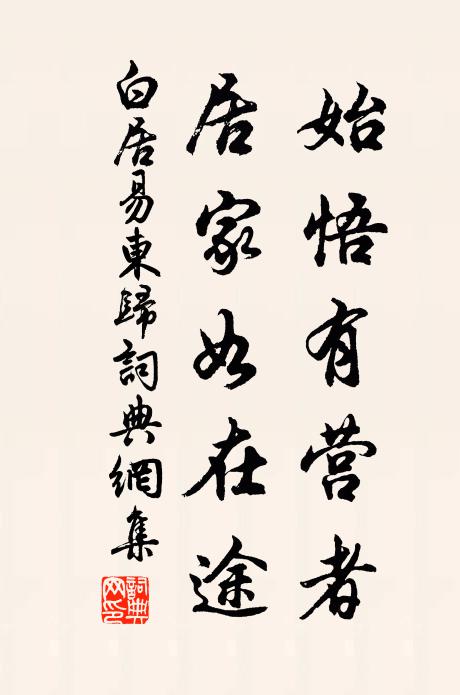 始悟有营者
居家如在途
白居易東歸詞典網集
詞典
网印